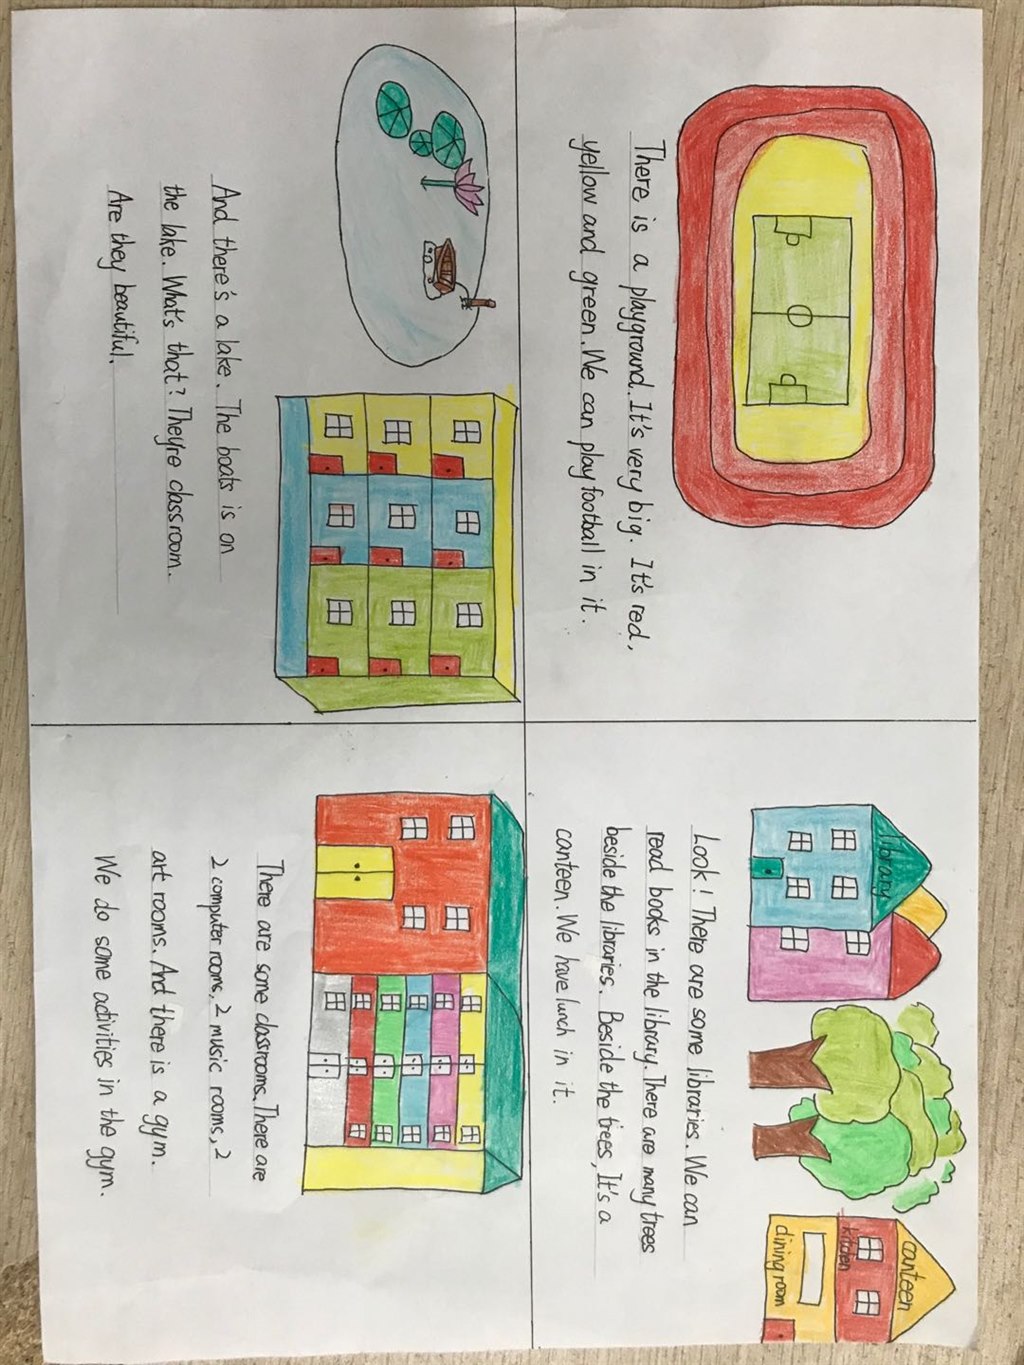 There is a playground. It's very big. It's red,
yellow and green. We can play football in it.
library
canteen
kitchen
dining room
Look! There are some libraries. We can
read books in the library. There are many trees
beside the libraries. Beside the trees, It's a
canteen. We have lunch in it.
And there's a lake. The boats is on
the lake. What's that? They're classroom.
Are they beautiful.
There are some classrooms. There are
2 computer rooms, 2 music rooms, 2
art rooms. And there is a gym.
We do some activities in the gym.